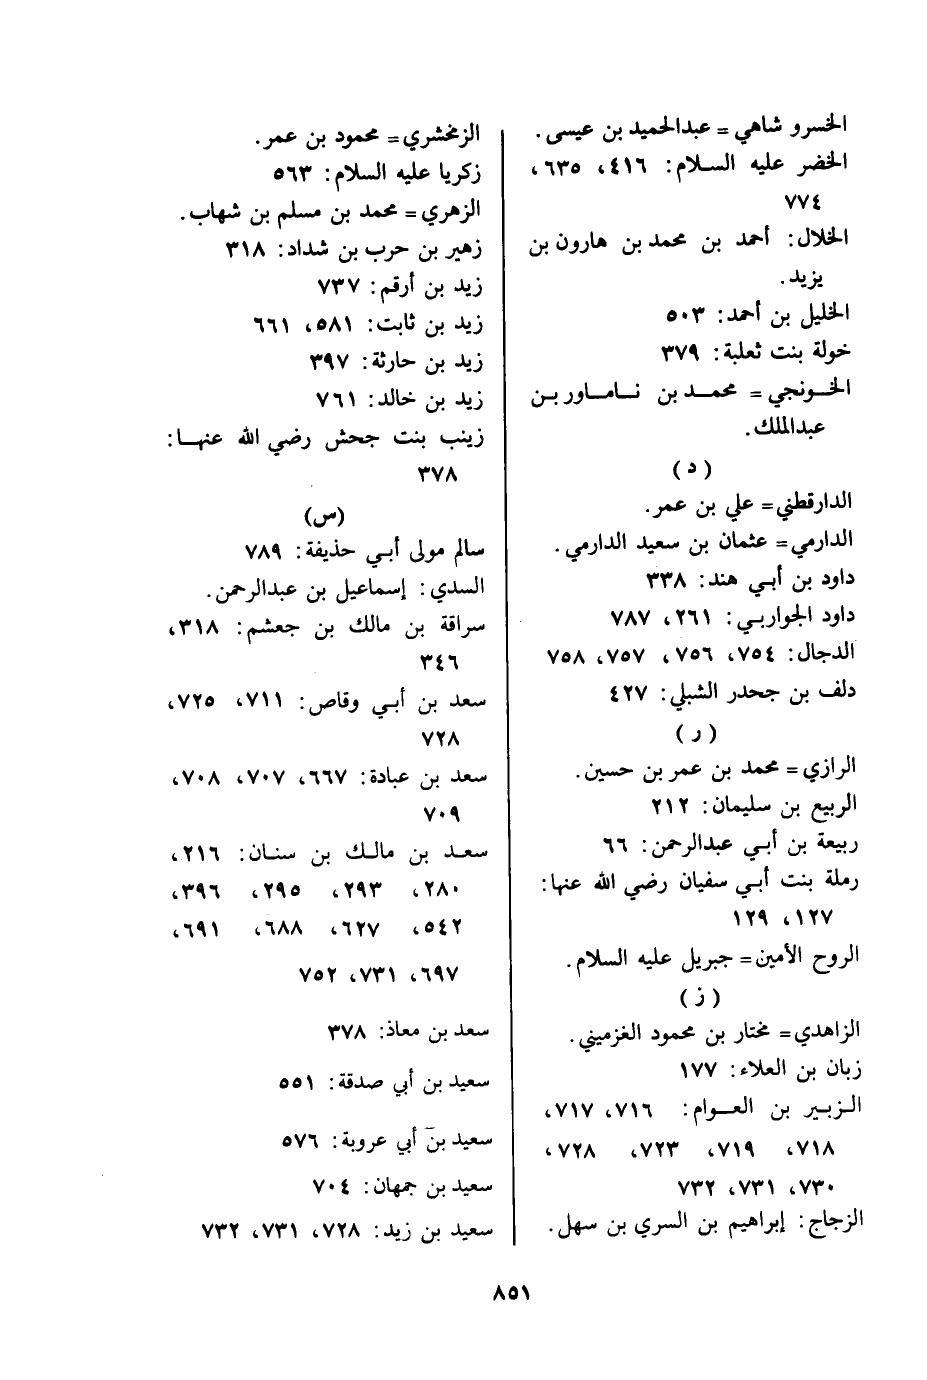 الخسرو شاهي = عبدالحميد بن عيسى.
الخضر عليه السلام: ٤١٦، ٦٣٥،
٧٧٤
الخلال: أحمد بن محمد بن هارون بن
يزيد.
الخليل بن أحمد: ٥٠٣
خولة بنت ثعلبة: ٣٧٩
الخونجي = محمد بن ناماور بن
عبدالملك.
(د)
الدارقطني = علي بن عمر.
الدارمي = عثمان بن سعيد الدارمي.
داود بن أبي هند: ٣٣٨
داود الجواربي: ٢٦١، ٧٨٧
الدجال: ٧٥٤، ٧٥٦، ٧٥٧، ٧٥٨
دلف بن جحدر الشبلي: ٤٢٧
(ر)
الرازي = محمد بن عمر بن حسين.
الربيع بن سليمان: ٢١٢
ربيعة بن أبي عبدالرحمن: ٦٦
رملة بنت أبي سفيان رضي الله عنها:
١٢٧، ١٢٩
الروح الأمين = جبريل عليه السلام.
(ز)
الزاهدي = مختار بن محمود الغزميني.
زبان بن العلاء: ١٧٧
الزبير بن العوام: ٧١٦، ٧١٧،
٧١٨، ٧١٩، ٧٢٣، ٧٢٨،
٧٣٠، ٧٣١، ٧٣٢
الزجاج: إبراهيم بن السري بن سهل.
الزمخشري = محمود بن عمر.
زكريا عليه السلام: ٥٦٣
الزهري = محمد بن مسلم بن شهاب.
زهير بن حرب بن شداد: ٣١٨
زيد بن أرقم: ٧٣٧
زيد بن ثابت: ٥٨١، ٦٦١
زيد بن حارثة: ٣٩٧
زيد بن خالد: ٧٦١
زينب بنت جحش رضي الله عنها:
٣٧٨
(س)
سالم مولى أبي حذيفة: ٧٨٩
السدي: إسماعيل بن عبدالرحمن.
سراقة بن مالك بن جعشم: ٣١٨،
٣٤٦
سعد بن أبي وقاص: ٧١١، ٧٢٥،
٧٢٨
سعد بن عبادة: ٦٦٧، ٧٠٧، ٧٠٨،
٧٠٩
سعد بن مالك بن سنان: ٢١٦،
٢٨٠، ٢٩٣، ٢٩٥، ٣٩٦،
٥٤٢، ٦٢٧، ٦٨٨، ٦٩١،
٦٩٧، ٧٣١، ٧٥٢
سعد بن معاذ: ٣٧٨
سعيد بن أبي صدقة: ٥٥١
سعيد بن أبي عروبة: ٥٧٦
سعيد بن جمهان: ٧٠٤
سعيد بن زيد: ٧٢٨، ٧٣١، ٧٣٢
٨٥١